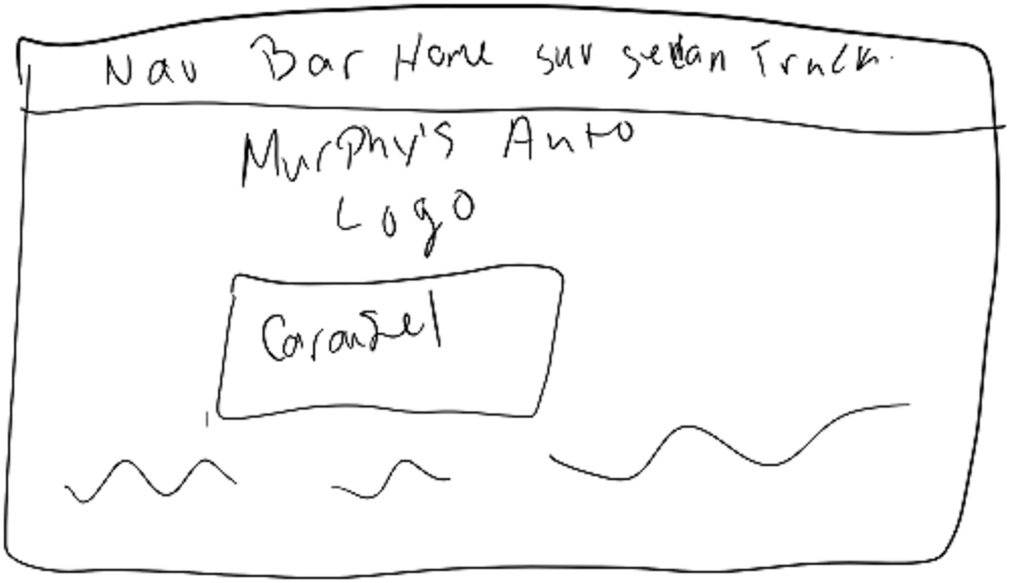 Nav Bar Home suv sedan Truck
Murphy's Auto
Logo
Carousel